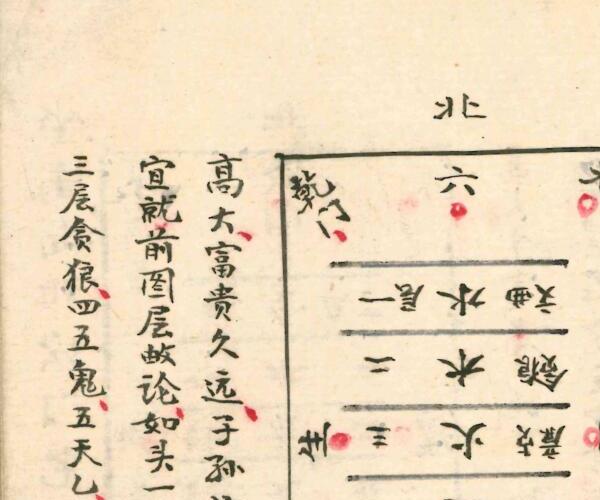 北
乾门
六
文曲 水 层一
贪狼 木 二
廉贞 火 三
生
高大富贵久远子孙
宜就前图层故论如头一
三层贪狼四五鬼五天乙